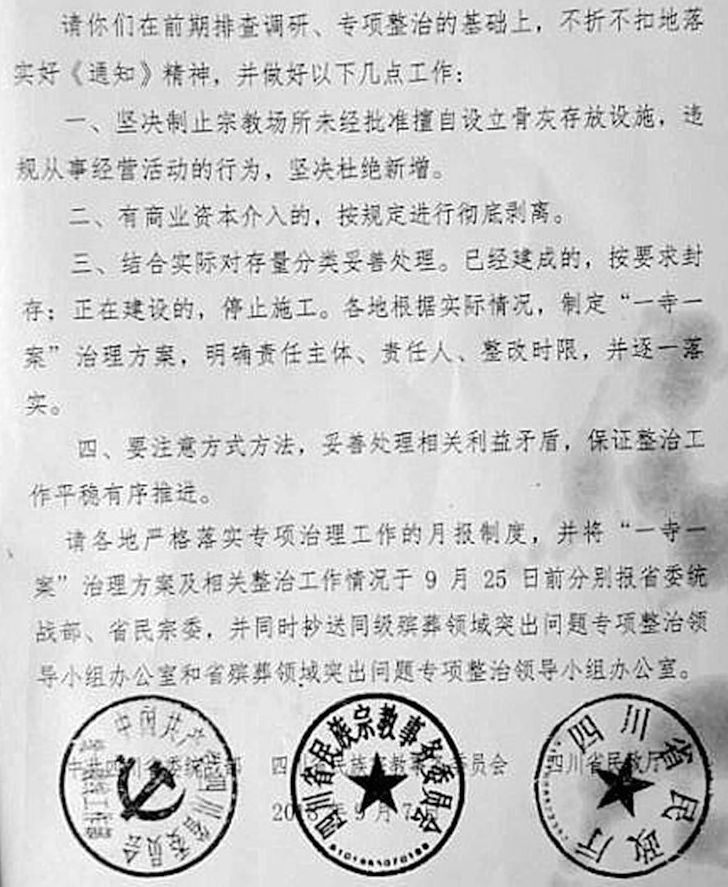 请你们在前期排查调研、专项整治的基础上，不折不扣地落
实好《通知》精神，并做好以下几点工作：
一、坚决制止宗教场所未经批准擅自设立骨灰存放设施，违
规从事经营活动的行为，坚决杜绝新增。
二、有商业资本介入的，按规定进行彻底剥离。
三、结合实际对存量分类妥善处理。已经建成的，按要求封
存；正在建设的，停止施工。各地根据实际情况，制定“一寺一
案”治理方案，明确责任主体、责任人、整改时限，并逐一落
实。
四、要注意方式方法，妥善处理相关利益矛盾，保证整治工
作平稳有序推进。
请各地严格落实专项治理工作的月报制度，并将“一寺一
案”治理方案及相关整治工作情况于9月25日前分别报省委统
战部、省民宗委，并同时抄送同级殡葬领域突出问题专项整治领
导小组办公室和省殡葬领域突出问题专项整治领导小组办公室。
中共四川省委统战部 四川省民族宗教事务委员会 四川省民政厅
2018年9月7日
中国共产党四川省委员会
四川省民族宗教事务委员会
四川省民政厅